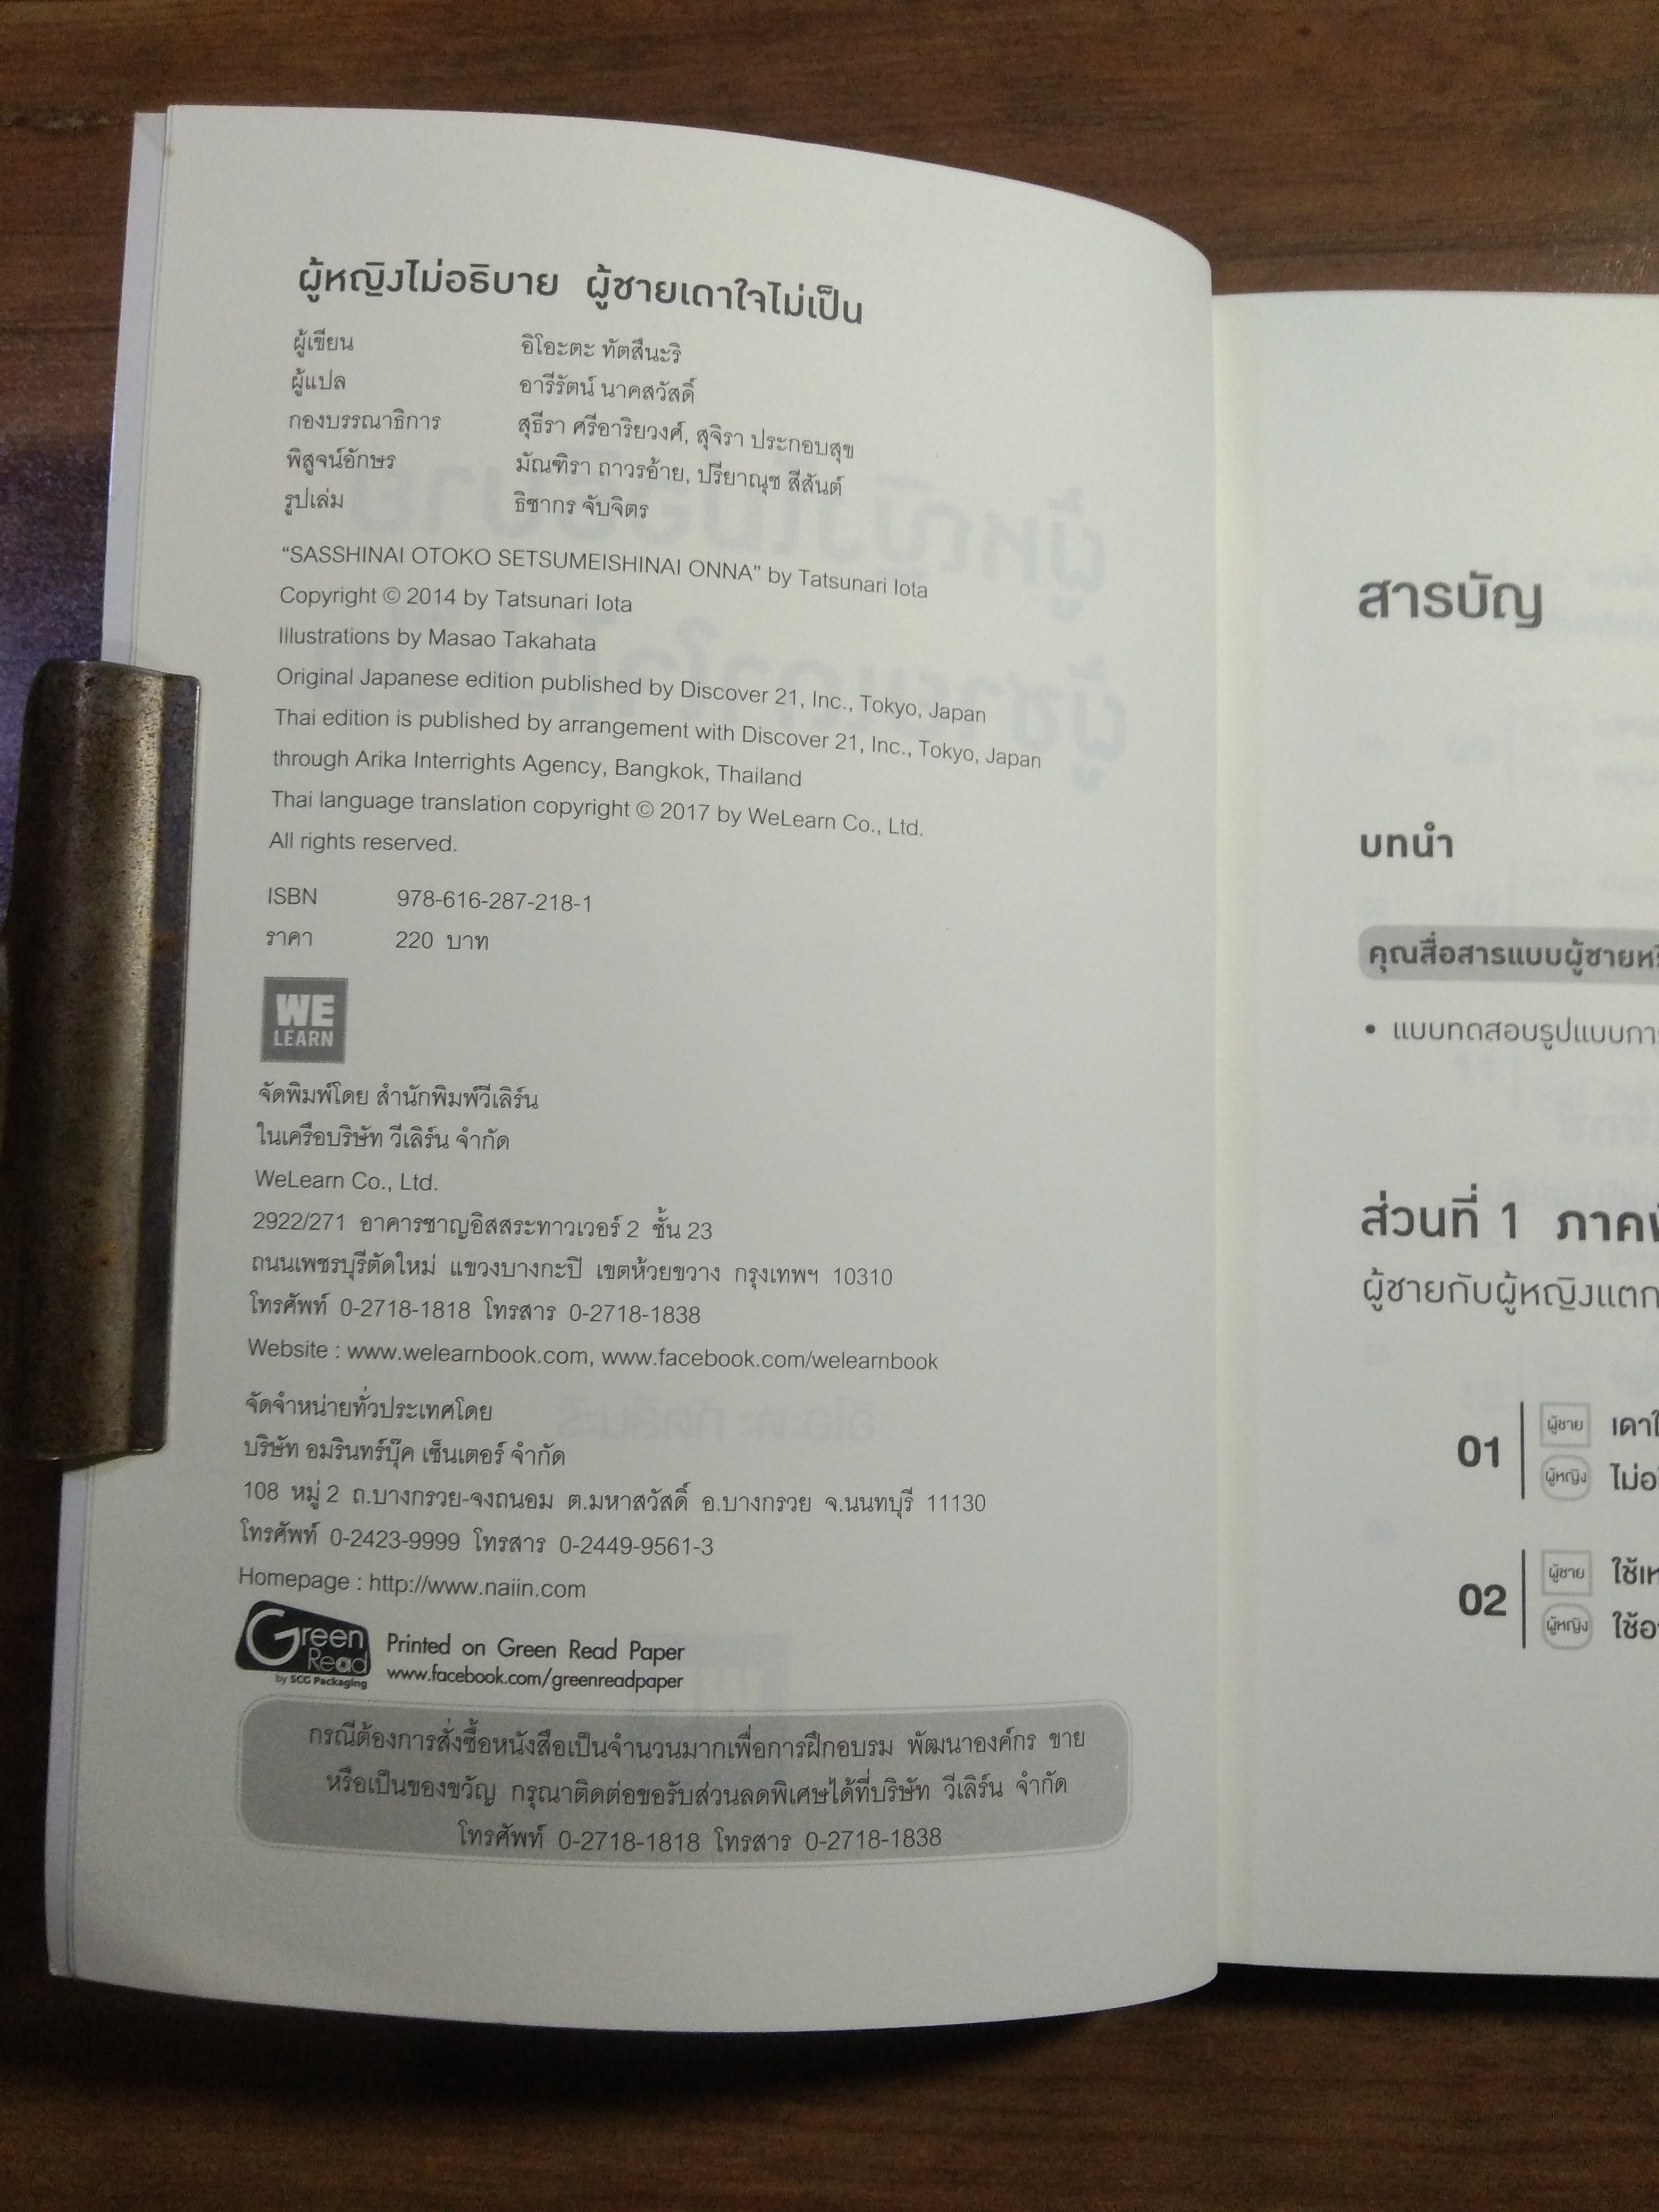 ผู้หญิงไม่อธิบาย ผู้ชายเดาใจไม่เป็น
ผู้เขียน อิโอะตะ ทัตสึนะริ
ผู้แปล อารีรัตน์ นาคสวัสดิ์
กองบรรณาธิการ สุธีรา ศรีอาริยวงศ์, สุจิรา ประกอบสุข
พิสูจน์อักษร มัณฑิรา ถาวรอ้าย, ปรียาณุช สีสันต์
รูปเล่ม ธิชากร จับจิตร
“SASSHINAI OTOKO SETSUMEISHINAI ONNA” by Tatsunari Iota
Copyright © 2014 by Tatsunari Iota
Illustrations by Masao Takahata
Original Japanese edition published by Discover 21, Inc., Tokyo, Japan
Thai edition is published by arrangement with Discover 21, Inc., Tokyo, Japan
through Arika Interrights Agency, Bangkok, Thailand
Thai language translation copyright © 2017 by WeLearn Co., Ltd.
All rights reserved.
ISBN 978-616-287-218-1
ราคา 220 บาท
WE
LEARN
จัดพิมพ์โดย สำนักพิมพ์วีเลิร์น
ในเครือบริษัท วีเลิร์น จำกัด
WeLearn Co., Ltd.
2922/271 อาคารชาญอิสสระทาวเวอร์ 2 ชั้น 23
ถนนเพชรบุรีตัดใหม่ แขวงบางกะปิ เขตห้วยขวาง กรุงเทพฯ 10310
โทรศัพท์ 0-2718-1818 โทรสาร 0-2718-1838
Website : www.welearnbook.com, www.facebook.com/welearnbook
จัดจำหน่ายทั่วประเทศโดย
บริษัท อมรินทร์บุ๊ค เซ็นเตอร์ จำกัด
108 หมู่ 2 ถ.บางกรวย-จงถนอม ต.มหาสวัสดิ์ อ.บางกรวย จ.นนทบุรี 11130
โทรศัพท์ 0-2423-9999 โทรสาร 0-2449-9561-3
Homepage : http://www.naiin.com
Green
Read
by SCG Packaging
Printed on Green Read Paper
www.facebook.com/greenreadpaper
กรณีต้องการสั่งซื้อหนังสือเป็นจำนวนมากเพื่อการฝึกอบรม พัฒนาองค์กร ขาย
หรือเป็นของขวัญ กรุณาติดต่อขอรับส่วนลดพิเศษได้ที่บริษัท วีเลิร์น จำกัด
โทรศัพท์ 0-2718-1818 โทรสาร 0-2718-1838
สารบัญ
บทนำ
คุณสื่อสารแบบผู้ชายห
• แบบทดสอบรูปแบบกา
ส่วนที่ 1 ภาค
ผู้ชายกับผู้หญิงแตก
01
ผู้ชาย เดา
ผู้หญิง ไม่อ
02
ผู้ชาย ใช้เห
ผู้หญิง ใช้อ